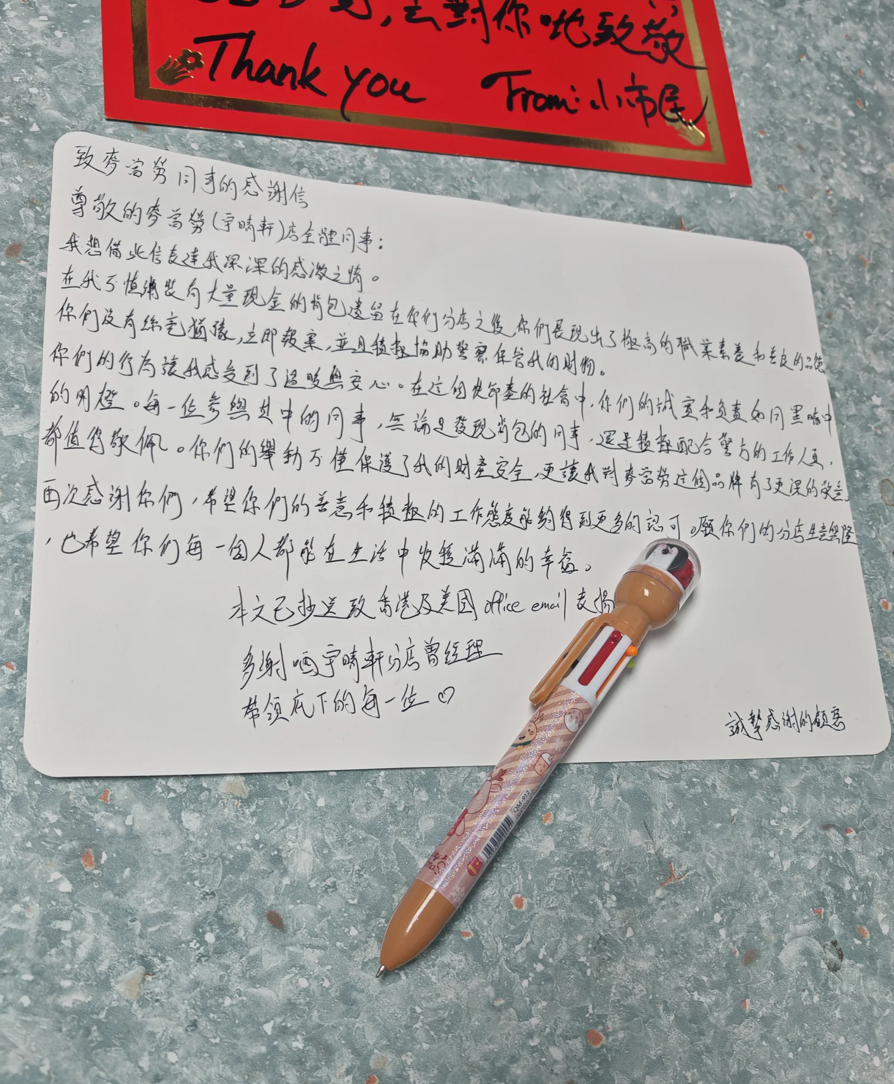 去對你哋致敬
Thank you From: 小市民
致麥當勞同事的感謝信
尊敬的麥當勞(宇晴軒)店全體同事:
我想借此信表達我深深的感激之情。
在我不慎將裝有大量現金的背包遺留在你們分店之後,你們展現出了極高的職業素養和善良的品德
你們沒有絲毫猶豫,立即報案,並且積極協助警察保管我的財物。
你們的行為讓我感受到了溫暖與安心。在這個快節奏的社會中,你們的誠實和負責如同黑暗中
的明燈。每一位參與其中的同事,無論是發現背包的同事,還是積極配合警方的工作人員,
都值得敬佩。你們的舉動不僅保護了我的財產安全,更讓我對麥當勞這個品牌有了更深的敬意
再次感謝你們,希望你們的善意和積極的工作態度能夠得到更多的認可。願你們的分店生意興隆
,也希望你們每一個人都能在生活中收穫滿滿的幸福。
本文已抄送致香港及美国office email表揚
多謝晒宇晴軒分店曾经理
带领底下的每一位♡
誠摯感謝的顧客